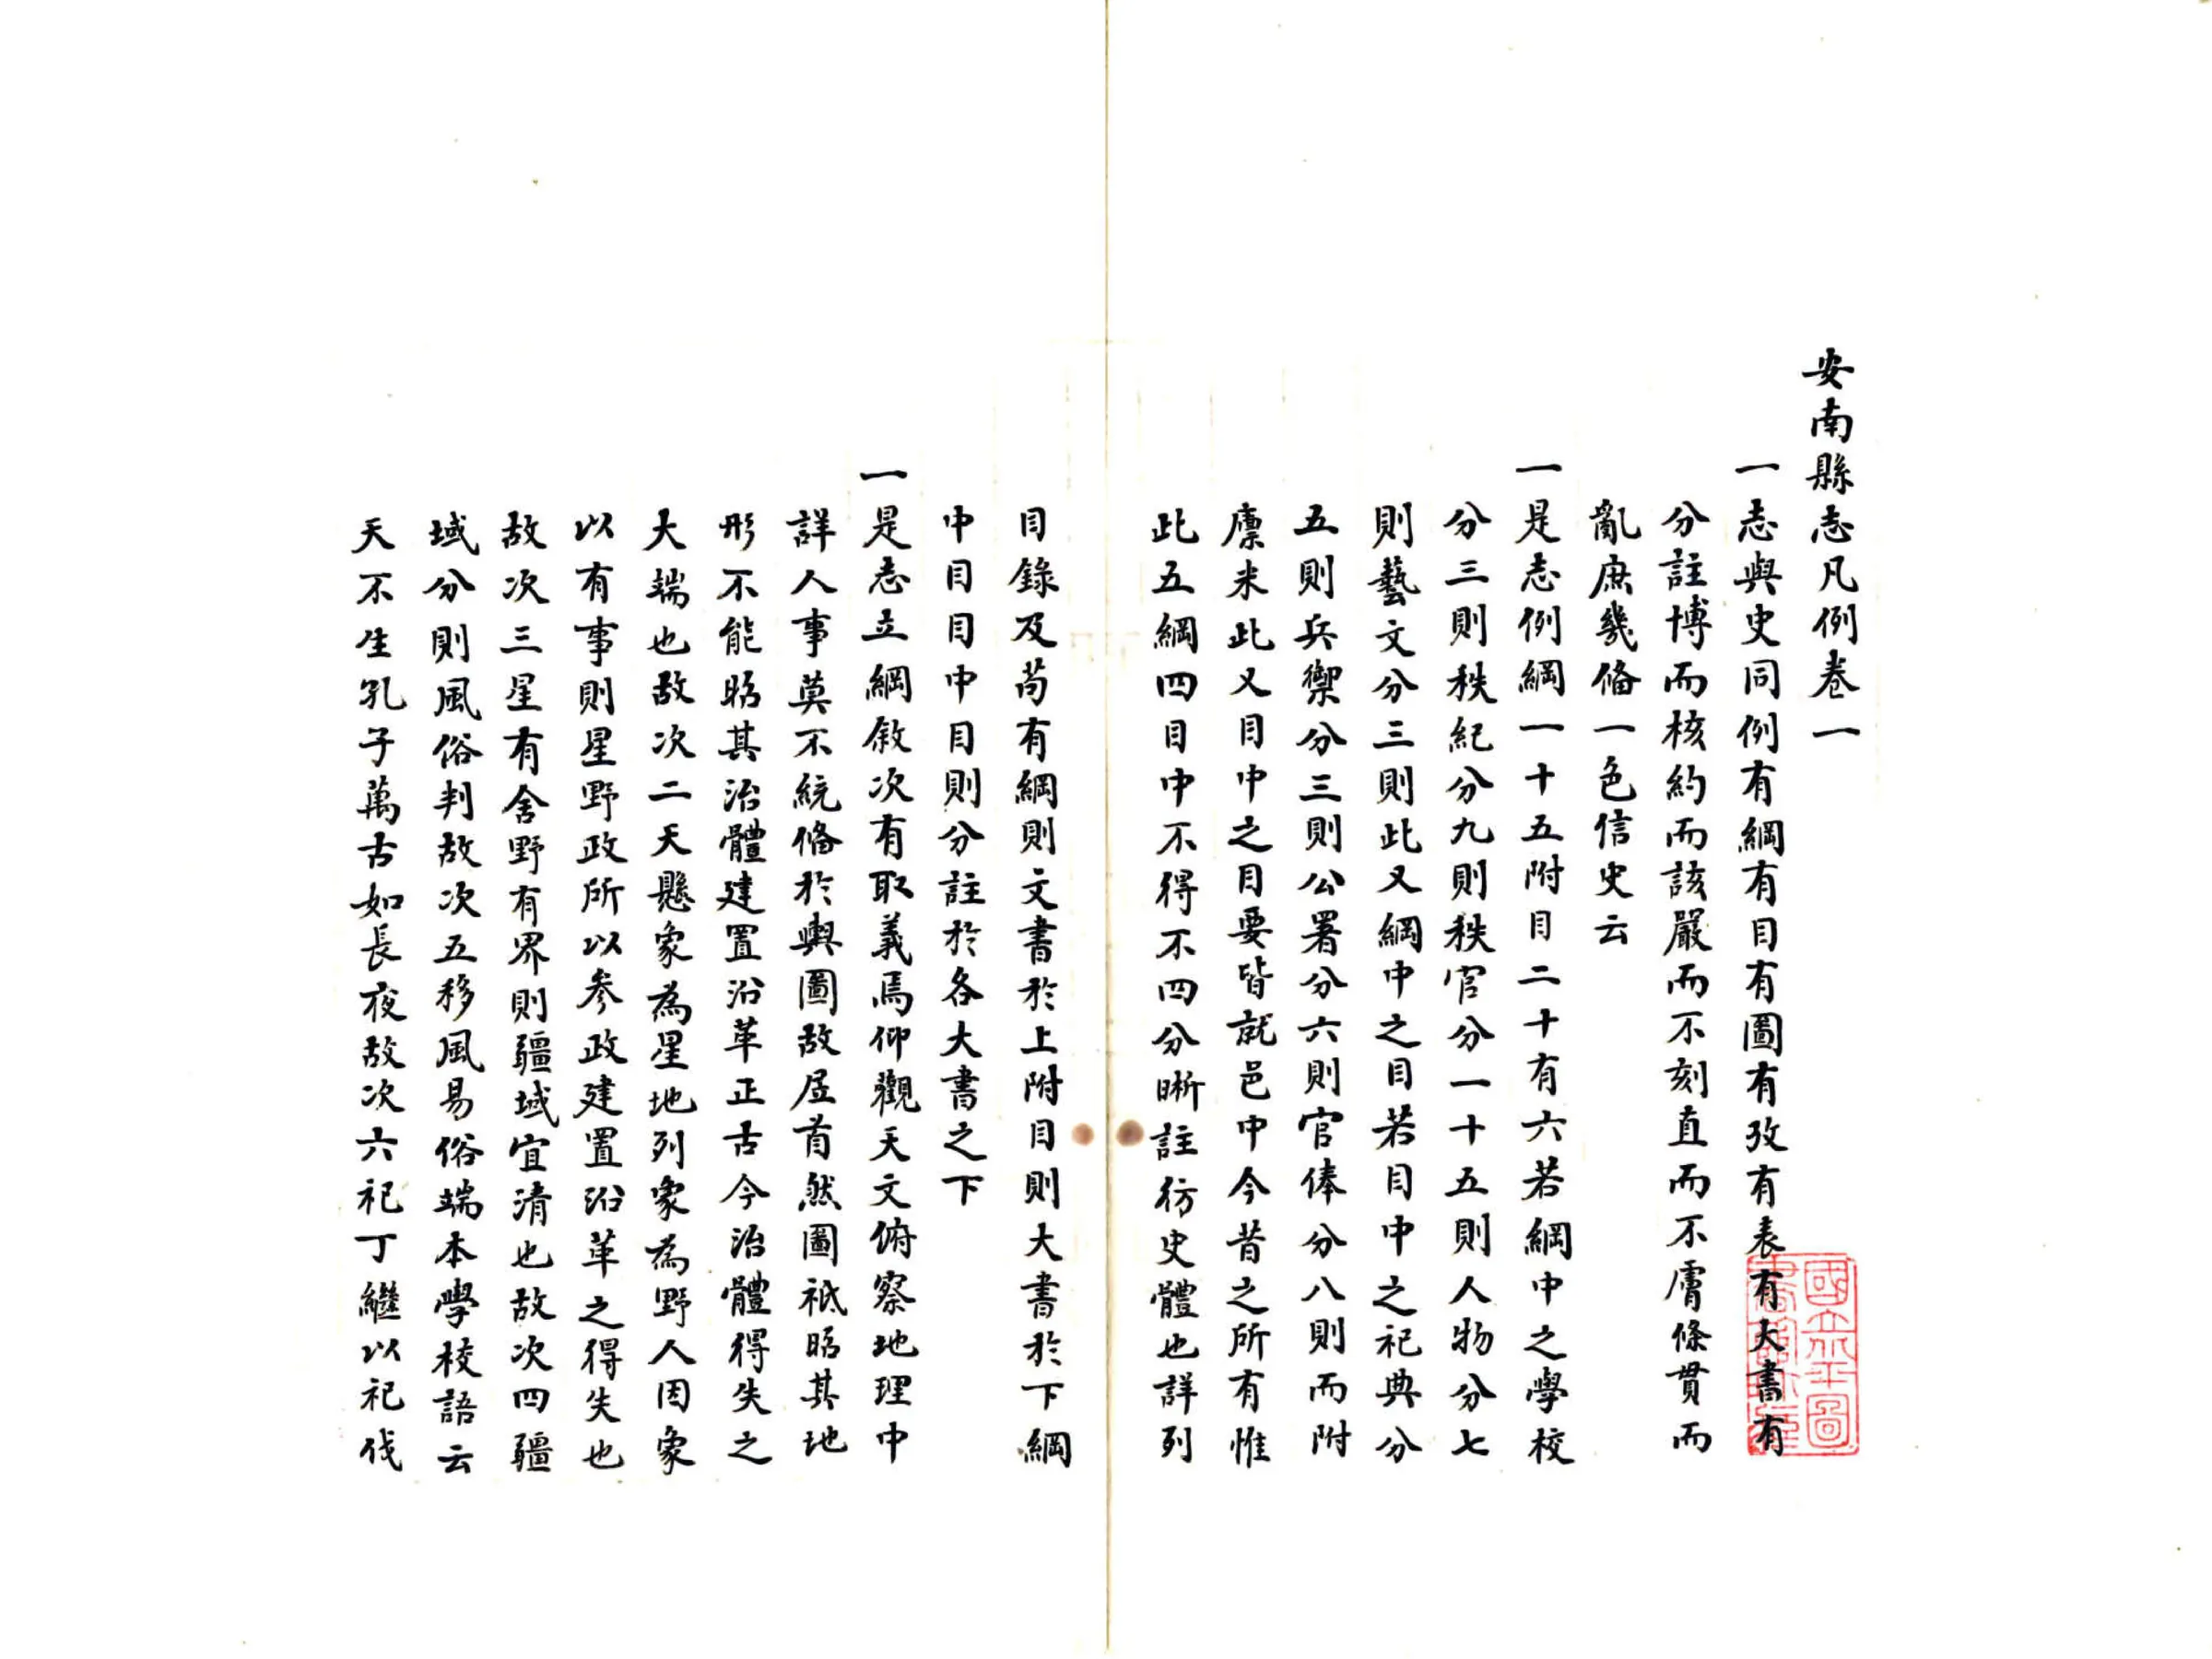 安南縣志凡例卷一
一志與史同例有綱有目有圖有攷有表有大書有
分註博而核約而該嚴而不刻直而不膚條貫而
亂庶幾俻一邑信史云
一是志例綱一十五附目二十有六若綱中之學校
分三則秩紀分九則秩官分一十五則人物分七
則藝文分三則此又綱中之目若目中之祀典分
五則兵禦分三則公署分六則官俸分八則而附
廪米此又目中之目要皆就邑中今昔之所有惟
此五綱四目中不得不四分晰註彷史體也詳列
目錄及茍有綱則文書於上附目則大書於下綱
中目目中目則分註於各大書之下
一是志立綱敘次有取義焉仰觀天文俯察地理中
詳人事莫不統俻於輿圖故居首然圖祇昭其地
形不能昭其治體建置沿革正古今治體得失之
大端也故次二天懸象為星地列象為野人因象
以有事則星野政所以參政建置沿革之得失也
故次三星有舍野有界則疆域宜清也故次四疆
域分則風俗判故次五移風易俗端本學校語云
天不生孔子萬古如長夜故次六祀丁繼以祀伐
國立北平圖書館收藏